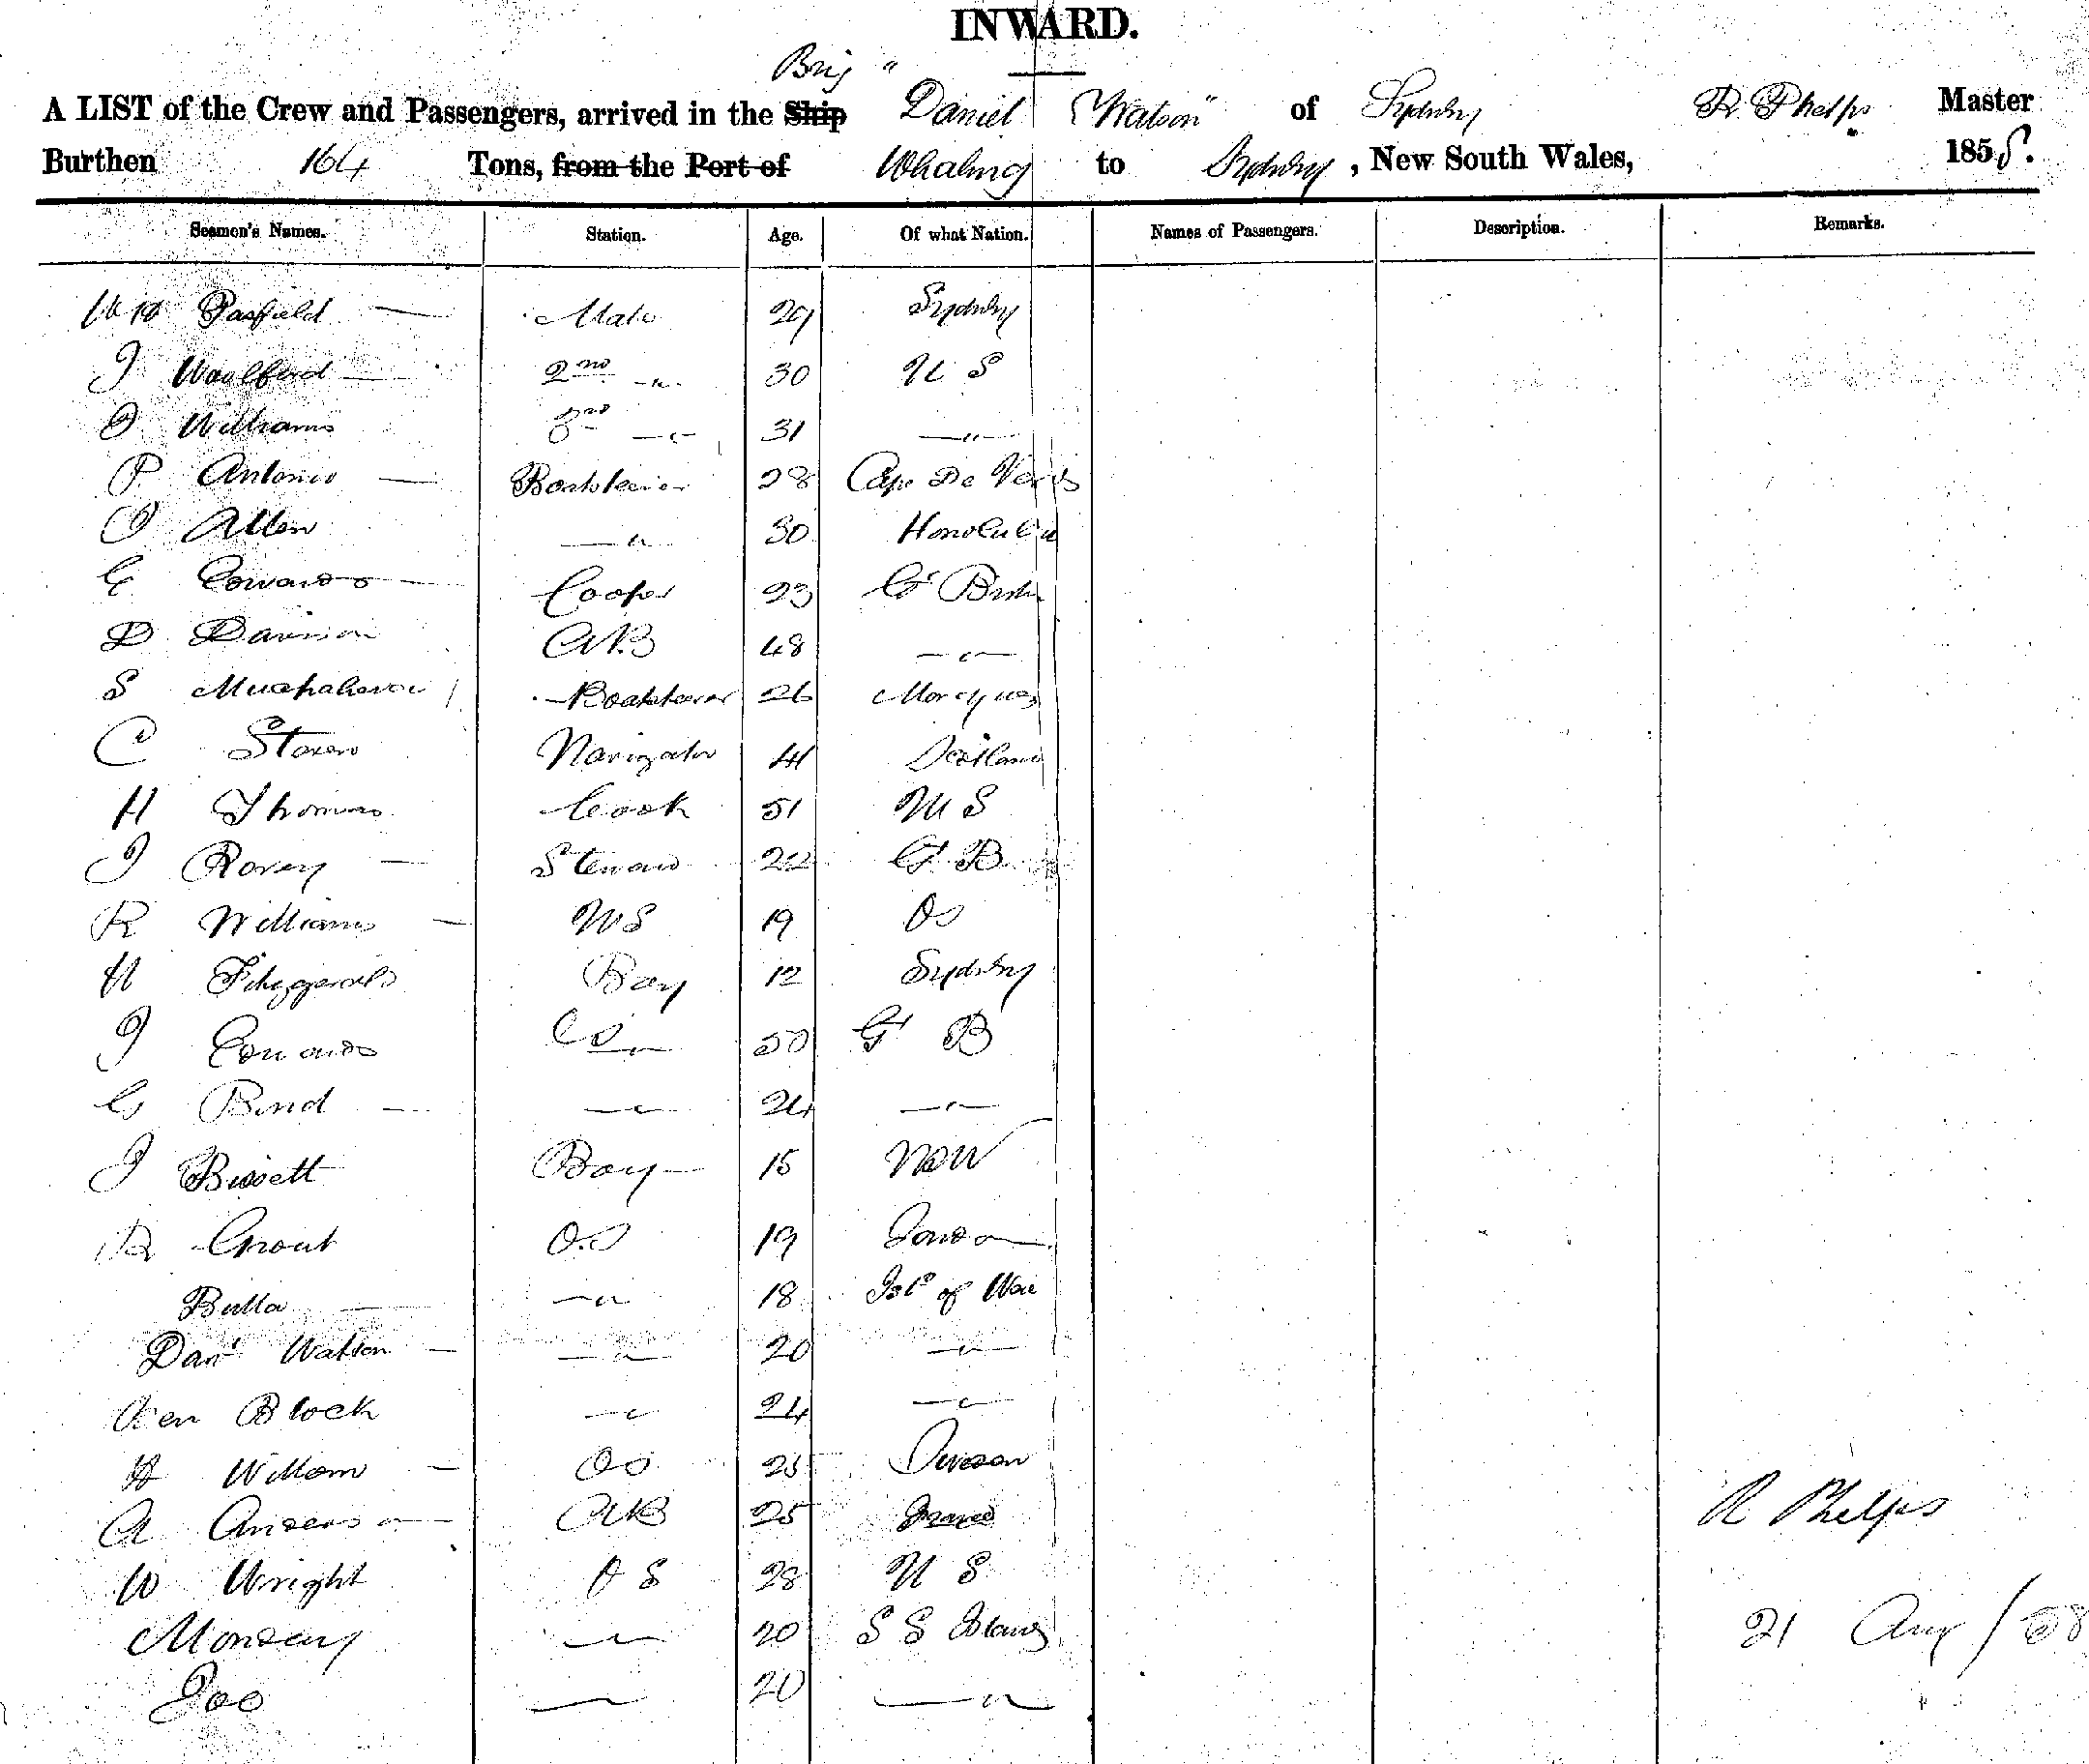 INWARD.
Brig "
A LIST of the Crew and Passengers, arrived in the Ship Daniel Watson" of Sydney R. Phelps Master
Burthen 164 Tons, from the Port of Whaling to Sydney, New South Wales, 1858.
Seamen's Names. Station. Age. Of what Nation. Names of Passengers. Description. Remarks.
Wm Pasfield — Mate 29 Sydney
J Woolford — 2nd —"— 30 U S
Williams 3rd —"— 31 —"—
P Antonio — Boatsteerer 28 Cape De Verds
Allen —"— 30 Honolulu
G Edwards — Cooper 23 Gt Britn
D Davison AB 48 —"—
S Boatsteerer 26 Marquas
C Navigator 41 Scotland
H Thomas Cook 51 U S
J — Steward 22 G B
R Williams — 19
H Fitzgerald Boy 12 Sydney
J Edwards 50 G B
G Bond — —"— 24 —"—
J Bissett Boy — 15 NSW
R Grout O.S 19 London
Bulla — —"— 18 Isld of
Danl Watson — —"— 20 —"—
Block —"— 24 —"—
William — OS 25
A Anderson — AB 25 R Phelps
W Wright O S 28 U S
Monday —"— 20 S S Islands 21 Aug / 58
Joe —"— 20 —"—